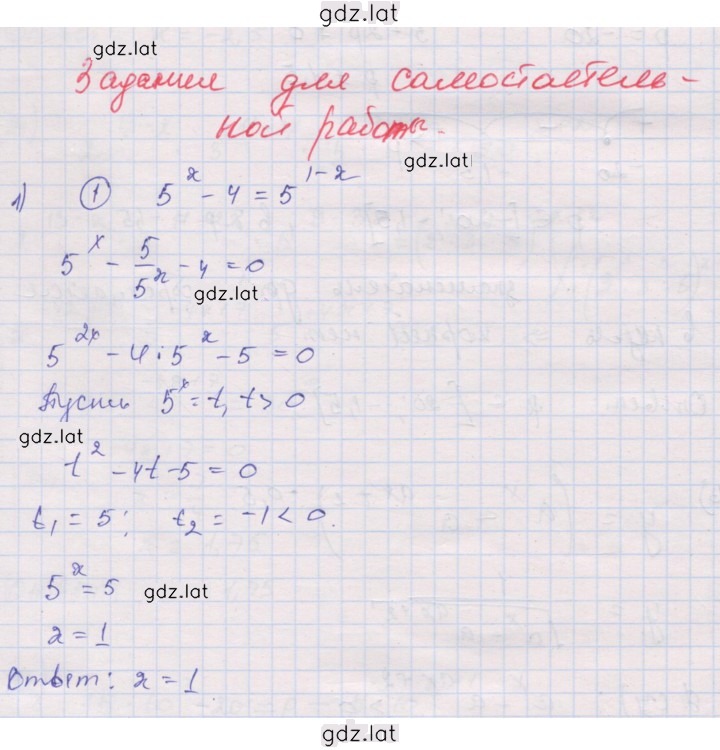 gdz.lat
gdz.lat
Задания для самостоятель-
ной работы.
gdz.lat
1) ① 5^x - 4 = 5^{1-x}
5^x - 5/5^x - 4 = 0
gdz.lat
5^{2x} - 4·5^x - 5 = 0
Пусть 5^x = t, t > 0
gdz.lat
t^2 - 4t - 5 = 0
t_1 = 5; t_2 = -1 < 0.
5^x = 5 gdz.lat
x = 1
Ответ: x = 1
gdz.lat